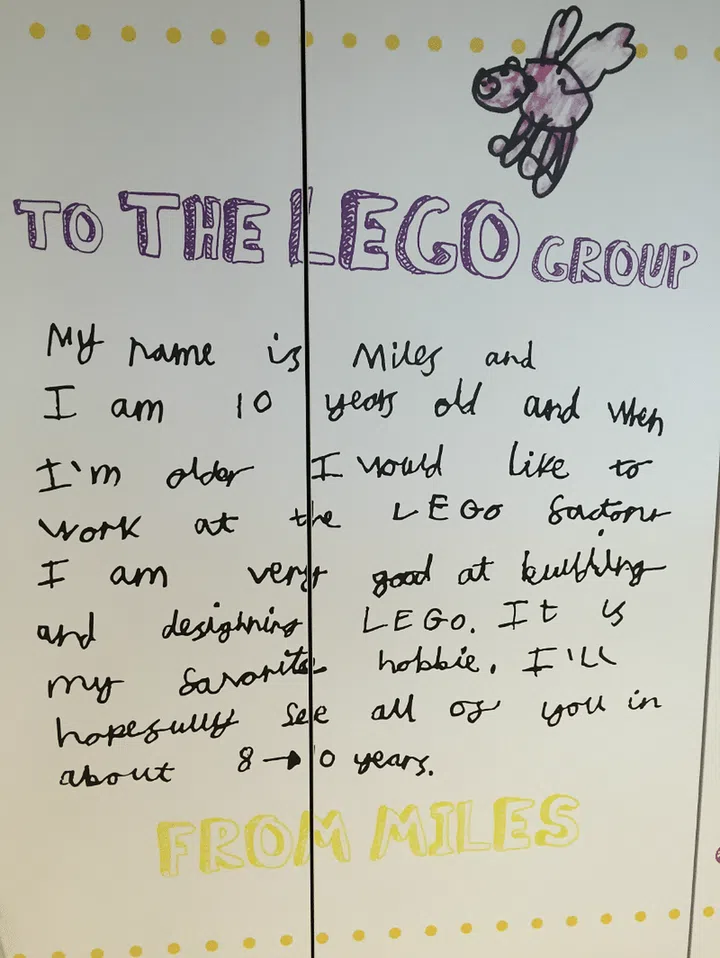 TO THE LEGO GROUP
My name is Miles and
I am 10 years old and when
I'm older I would like to
work at the LEGO factory
I am very good at building
and desighning LEGO. It is
my favorite hobbie. I'll
hopefully see all of you in
about 8→10 years.
FROM MILES